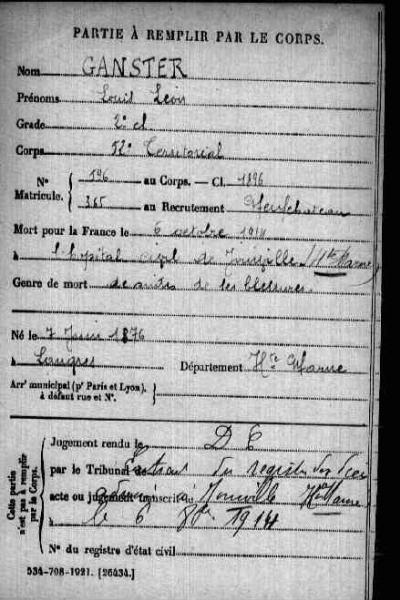 PARTIE À REMPLIR PAR LE CORPS.
Nom GANSTER
Prénoms Louis Léon
Grade 2e cl
Corps 52e Territorial
N° Matricule. { 596 au Corps. — Cl. 1896
365 au Recrutement Neufchateau
Mort pour la France le 6 octobre 1914
à l'hôpital civil de Joinville (Hte Marne)
Genre de mort des suites de ses blessures
Né le 7 Juin 1876
à Langres Département Hte Marne
Arrt municipal (pr Paris et Lyon), à défaut rue et N°.
Cette partie n'est pas à remplir par le Corps.
Jugement rendu le
par le Tribunal de Extrait des registres
acte ou jugement transcrit le à Joinville Hte Marne
à le 6 8bre 1914
N° du registre d'état civil
534-708-1921. [26434.]